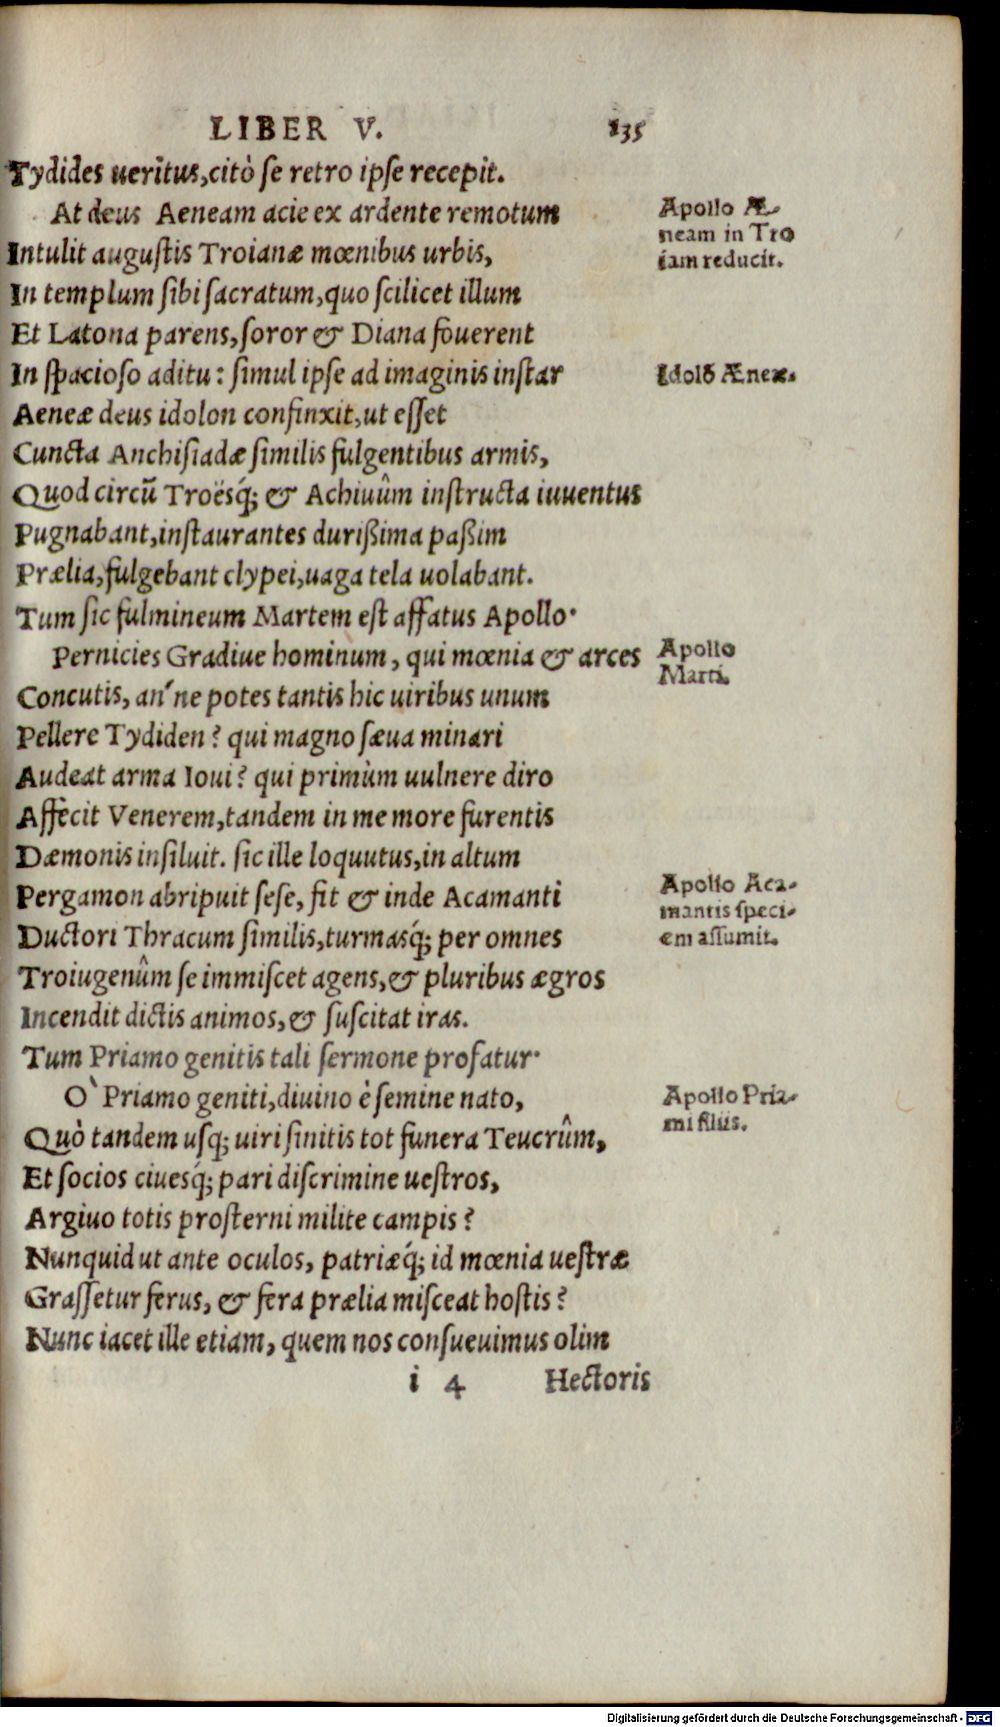 LIBER V. 135
Tydides ueritus, citò se retro ipse recepit.
At deus Aeneam acie ex ardente remotum
Apollo Æ-
neam in Tro
iam reducit.
Intulit augustis Troianæ mœnibus urbis,
In templum sibi sacratum, quo scilicet illum
Et Latona parens, soror & Diana fouerent
In spacioso aditu: simul ipse ad imaginis instar
Idolõ Æneæ.
Aeneæ deus idolon confinxit, ut esset
Cuncta Anchisiadæ similis fulgentibus armis,
Quod circũ Troësq́; & Achiuûm instructa iuuentus
Pugnabant, instaurantes durißima paßim
Prælia, fulgebant clypei, uaga tela uolabant.
Tum sic fulmineum Martem est affatus Apollo.
Pernicies Gradiue hominum, qui mœnia & arces
Apollo
Marti.
Concutis, an'ne potes tantis hic uiribus unum
Pellere Tydiden? qui magno sæua minari
Audeat arma Ioui? qui primùm uulnere diro
Affecit Venerem, tandem in me more furentis
Dæmonis insiluit. sic ille loquutus, in altum
Pergamon abripuit sese, fit & inde Acamanti
Apollo Aca-
mantis speci-
em assumit.
Ductori Thracum similis, turmasq́; per omnes
Troiugenûm se immiscet agens, & pluribus ægros
Incendit dictis animos, & suscitat iras.
Tum Priamo genitis tali sermone profatur.
O` Priamo geniti, diuino è semine nato,
Apollo Pria-
mi filiis.
Quò tandem usq; uiri sinitis tot funera Teucrûm,
Et socios ciuesq́; pari discrimine uestros,
Argiuo totis prosterni milite campis?
Nunquid ut ante oculos, patriæq́; id mœnia uestræ
Grassetur ferus, & fera prælia misceat hostis?
Nunc iacet ille etiam, quem nos consueuimus olim
i 4 Hectoris
Digitalisierung gefördert durch die Deutsche Forschungsgemeinschaft - DFG